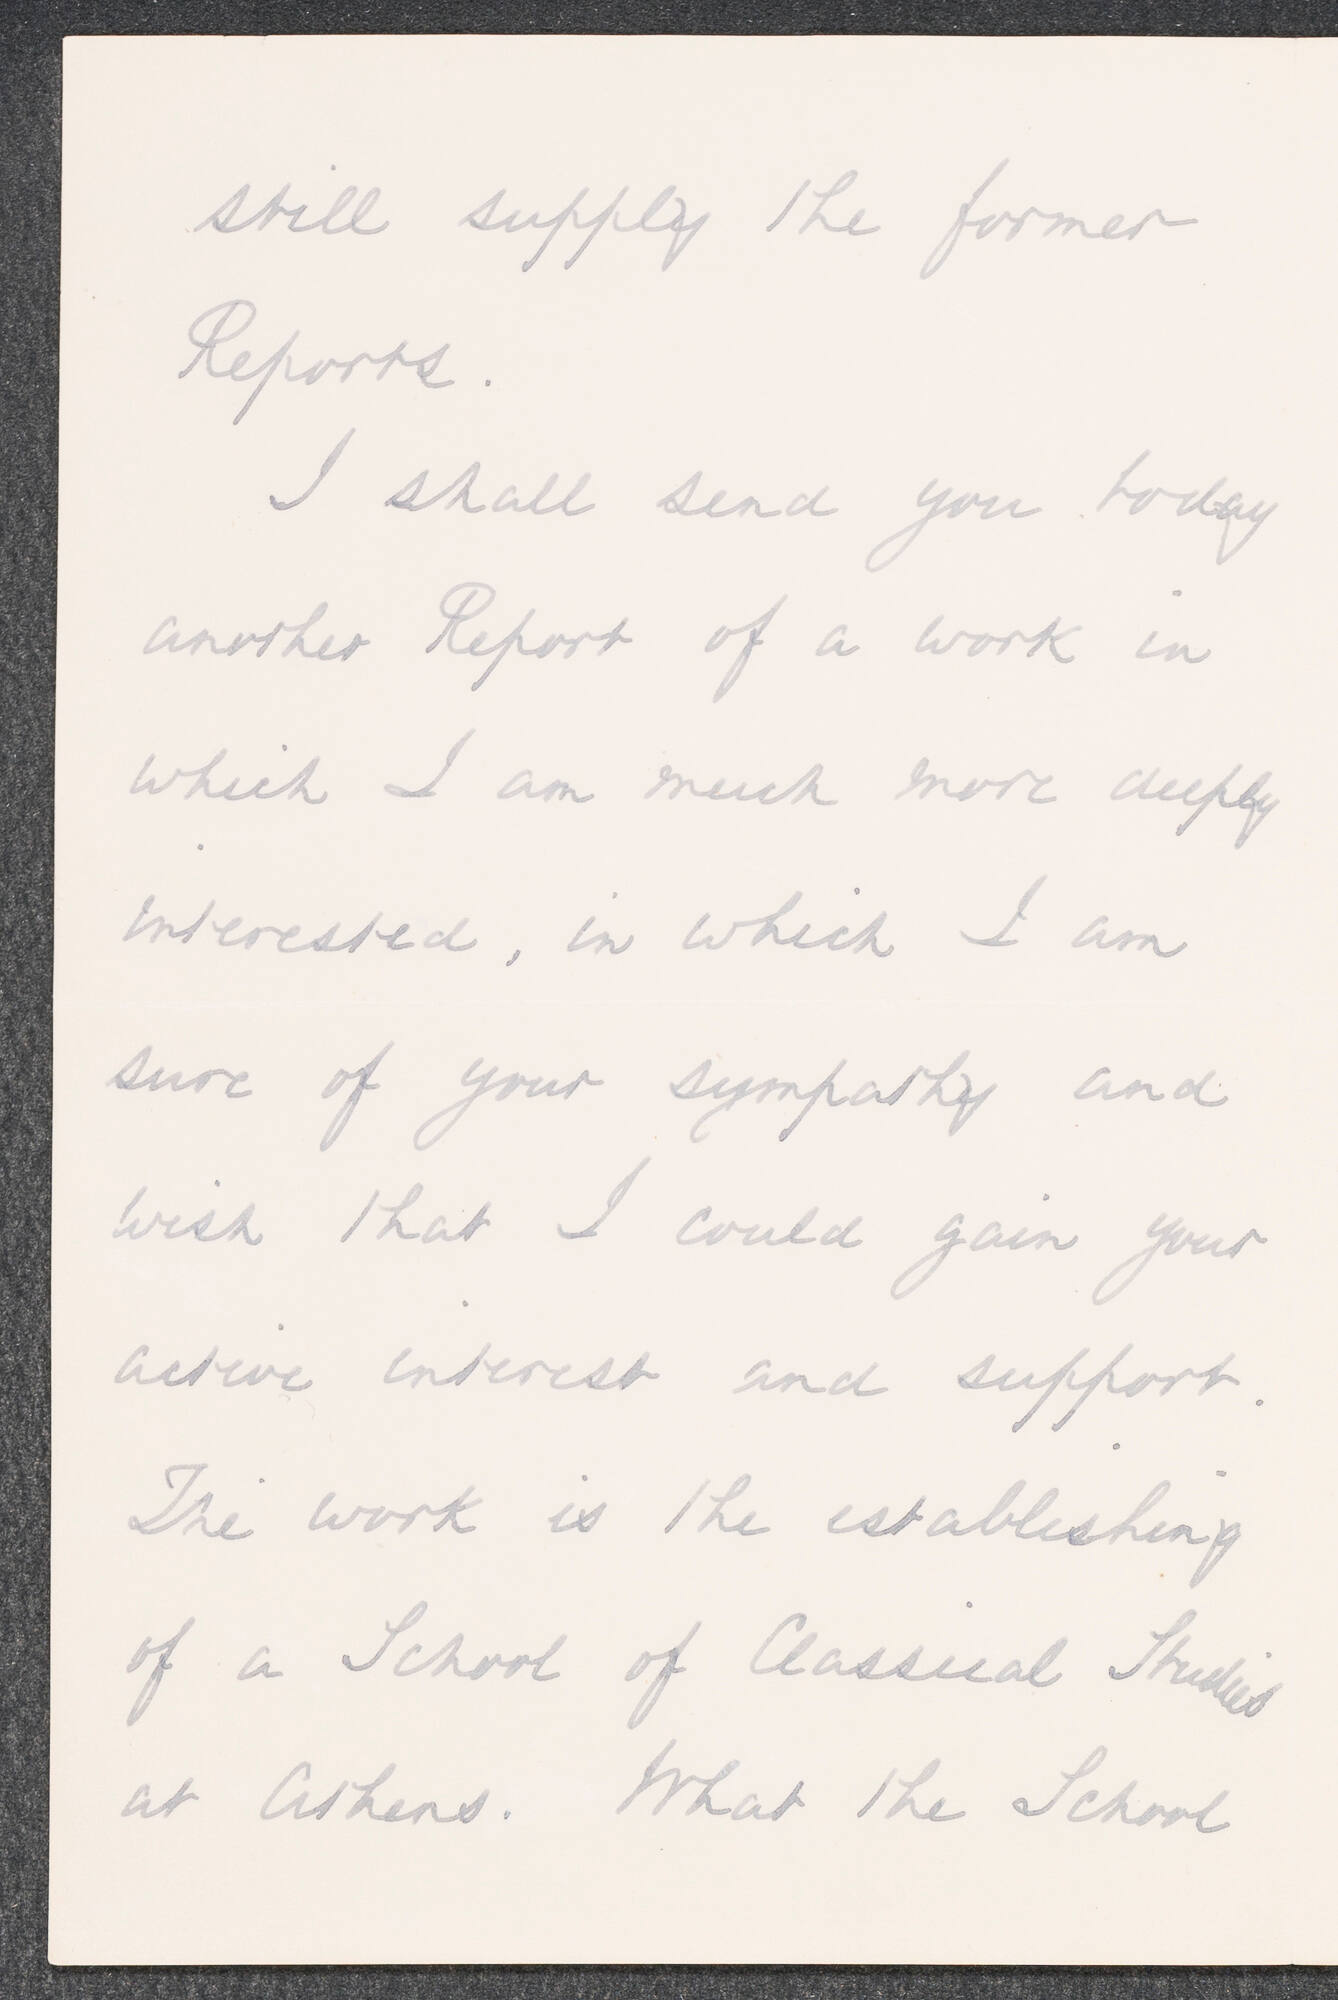 still supply the former
Reports.
I shall send you today
another Report of a work in
which I am much more deeply
interested, in which I am
sure of your sympathy and
wish that I could gain your
active interest and support.
The work is the establishing
of a School of Classical Studies
at Athens. What the School